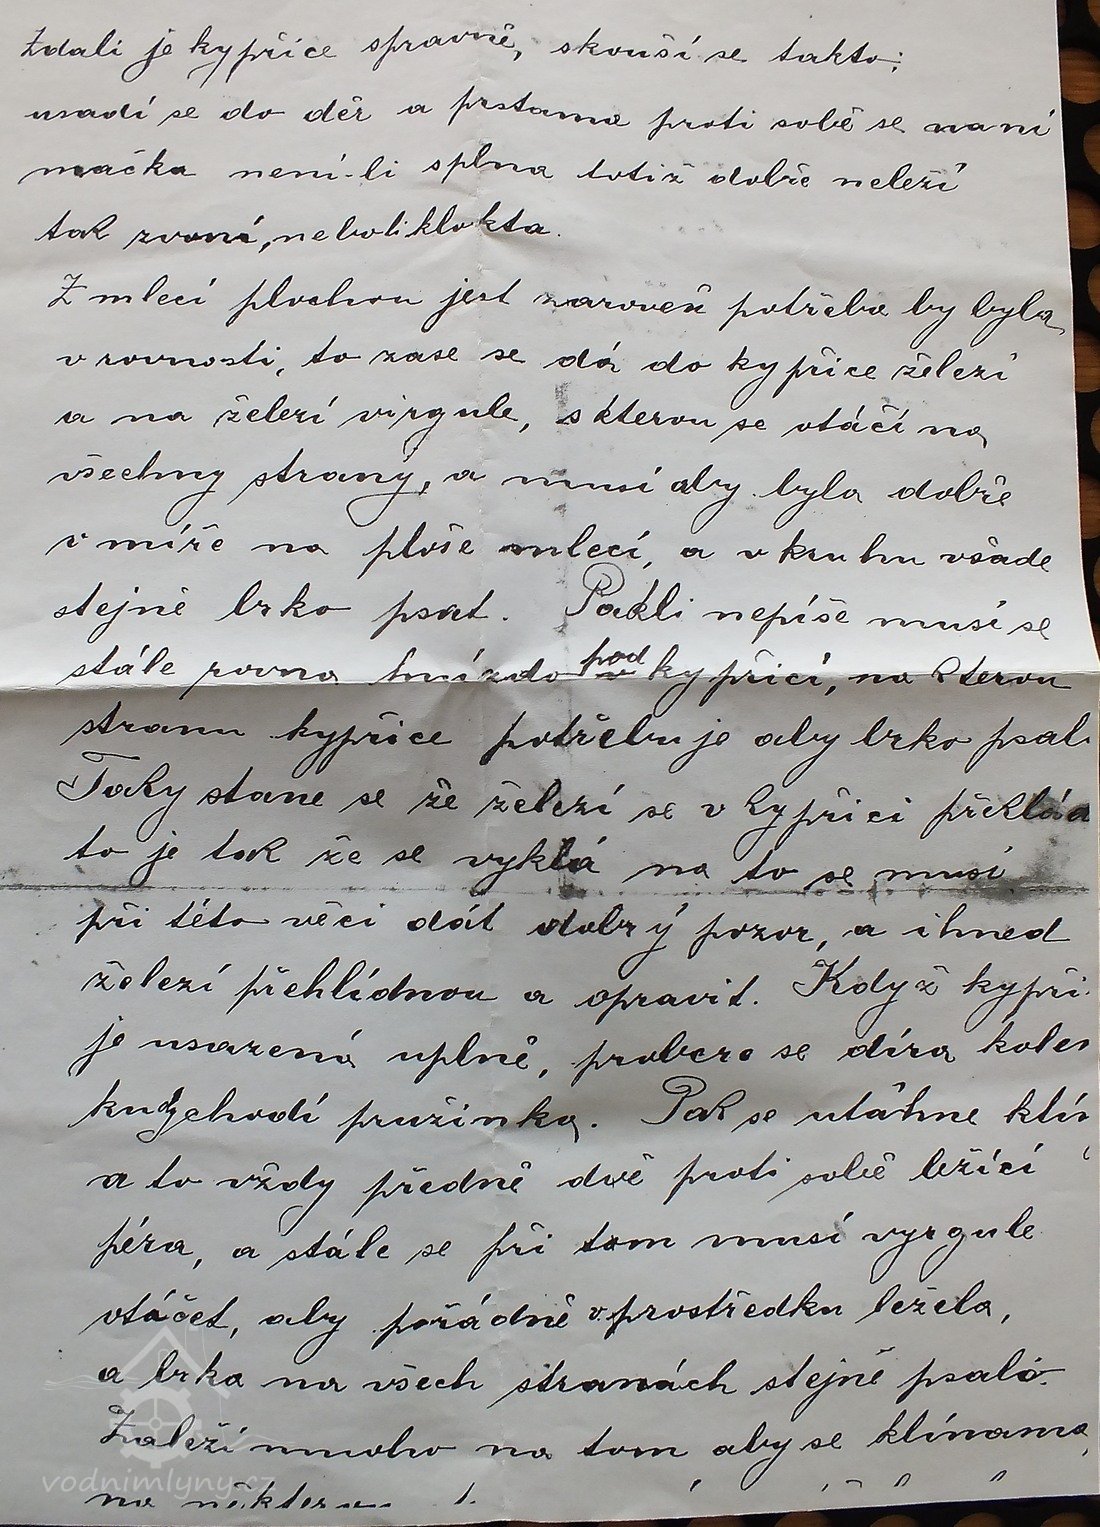 Zdali je kypřice spravně, skouší se takto:
usadí se do děr a prstama proti sobě se na ní
mačka není-li splna totiž dobře neleží
tak zvoní, neboli klokta.
Z mlecí plochou jest zaroveň potřeba by byla
v rovnosti, to zase se dá do kypřice železí
a na železí virgule, s kterou se otáčí na
všechny straný, a musí aby byla dobře
v míře na ploše mlecí, a v kruhu všade
stejně brko psat. Pakli nepíše musí se
stále rovna hnízdo pod kypřicí, na kterou
stranu kypřice potřebuje aby brko psal
Taky stane se že železí se v kypřici překlá
to je tak že se vyklá na to se musí
při této věci dát dobrý pozor, a ihned
železí přehlídnou a opravit. Když kypři
je usazená uplně, probere se díra kolem
kudy chodí pružinka. Pak se utáhne klín
a to vždy předně dvě proti sobě ležící
péra, a stále se při tom musí vyrgule
otáčet, aby pořádně v prostředku ležela,
a brka na všech stranách stejně psalo.
Zaleží mnoho na tom aby se klínama
na
vodnimlyny.cz